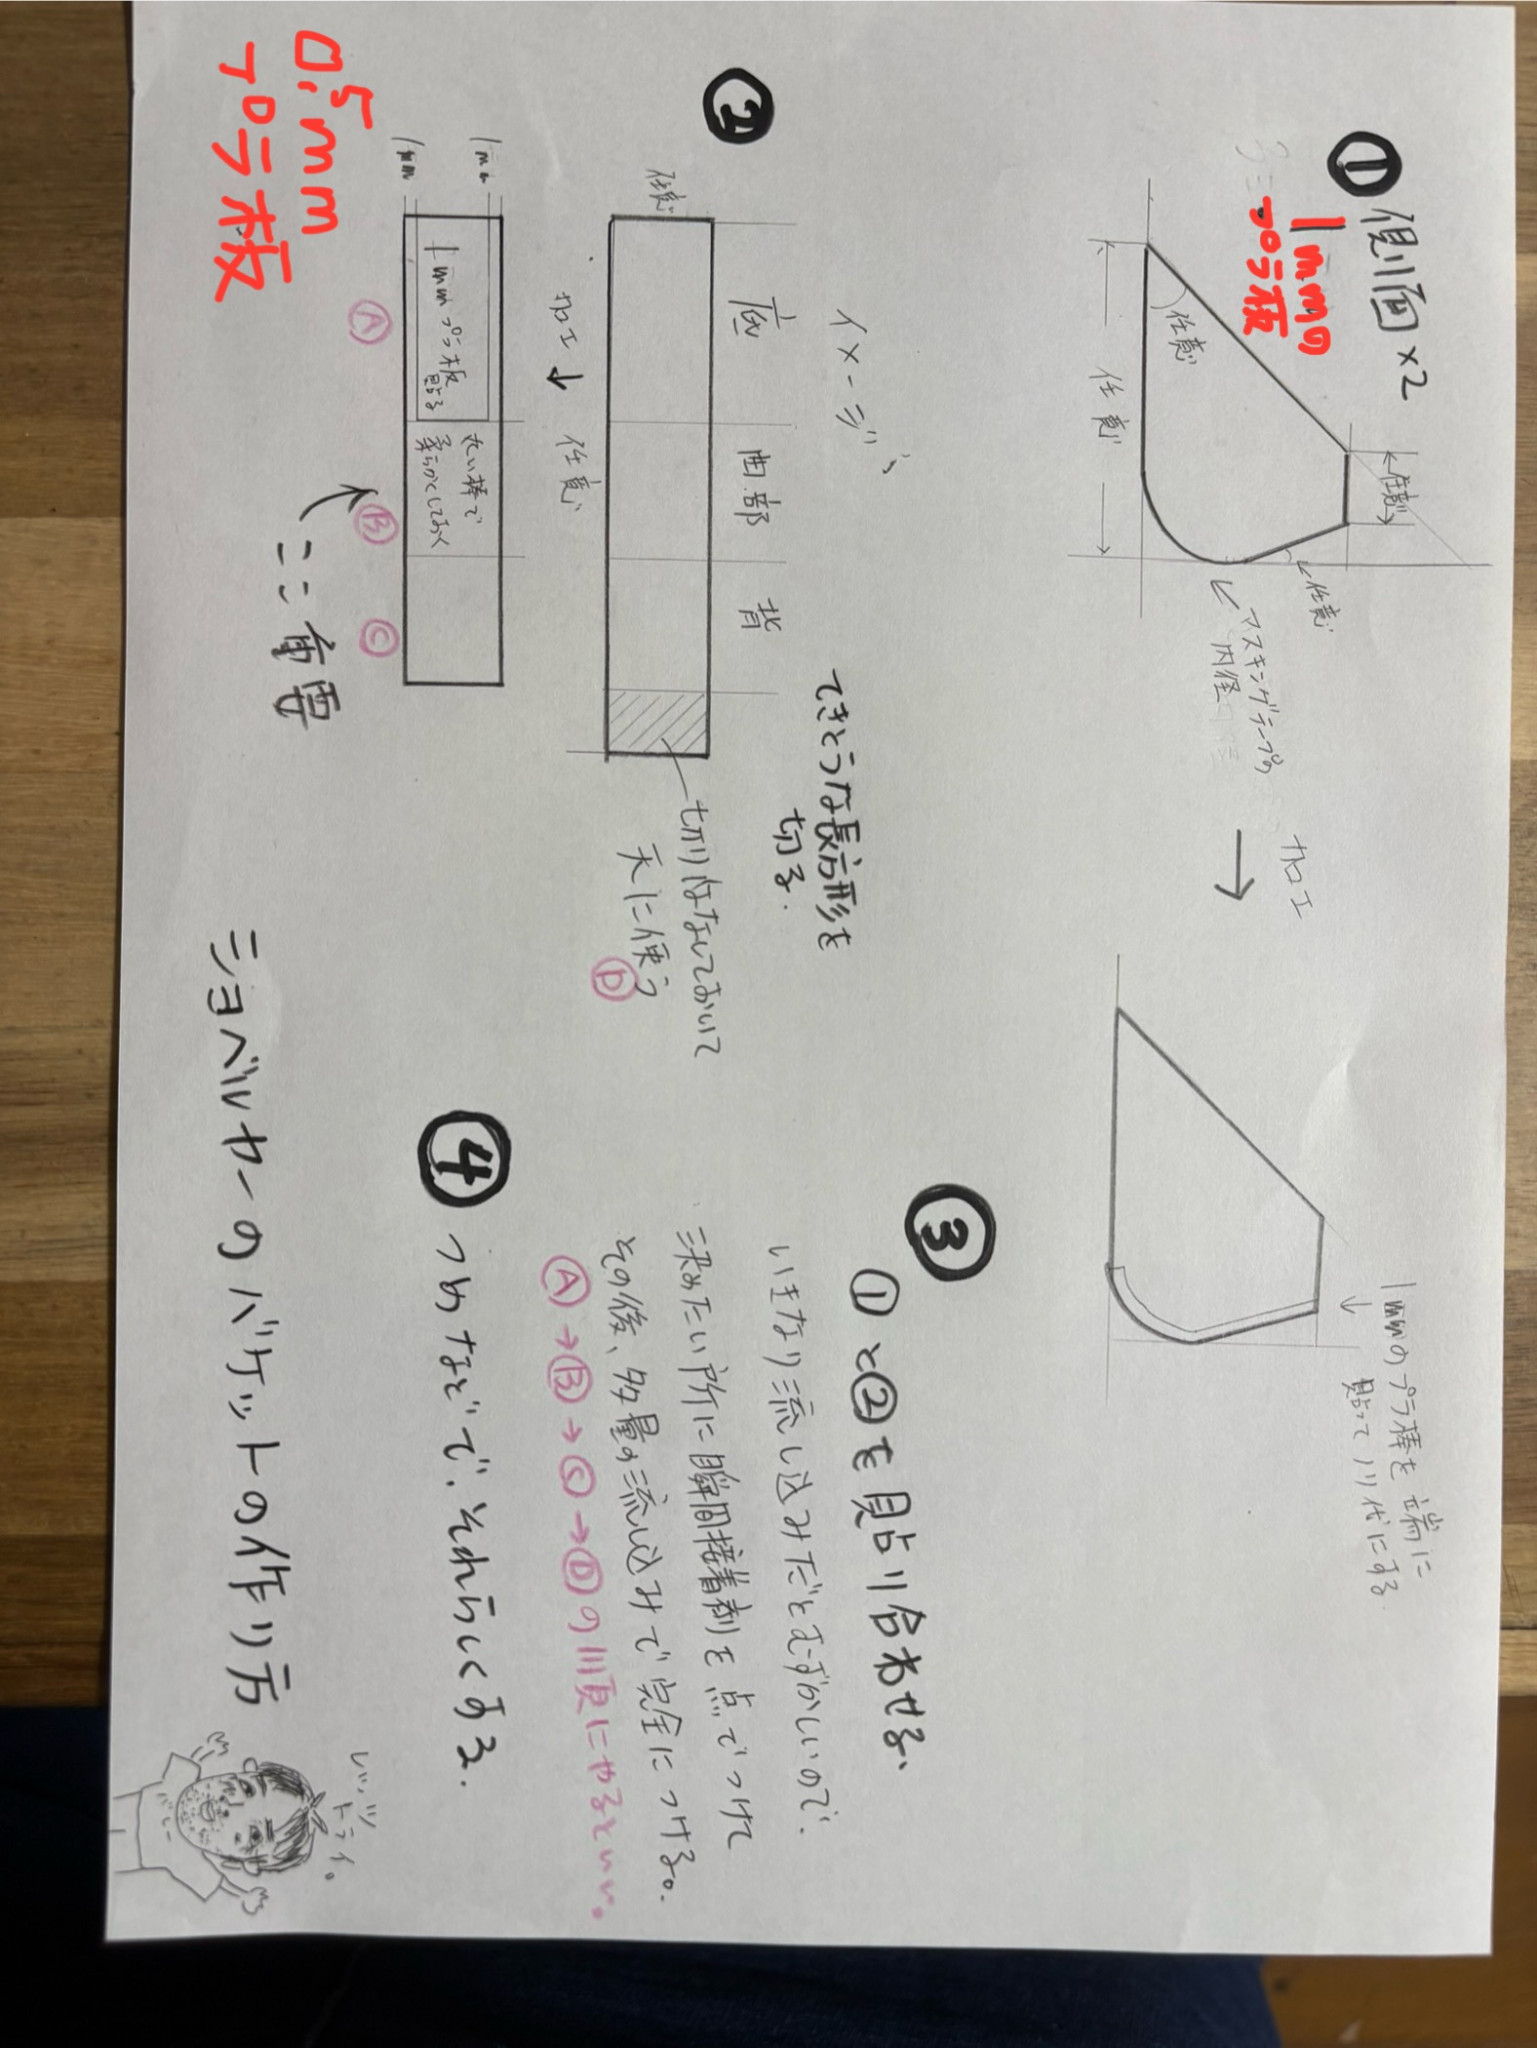 ① 側面×2
1mmの
プラ板
任意
任意
任意
任意
マスキングテープの
内径
加工
→
1mmのプラ棒を端に
貼ってノリ代にする
②
イメージ
てきとうな長方形を
切る.
底
曲部
背
任意
切りはなしておいて
天に使う
Ⓓ
加工
任意
1mm
1mm
1mmプラ板
貼る
丸い棒で
柔らかくしておく
Ⓐ
Ⓑ
Ⓒ
ここ重要
0.5mm
プラ板
③
①と②を貼り合わせる、
いきなり流し込みだとむずかしいので.
決めたい所に瞬間接着剤を点でつけて
その後、多量の流し込みで完全につける。
Ⓐ→Ⓑ→Ⓒ→Ⓓの順にやるといい。
④ つめなどで、それらしくする.
ショベルカーのバケットの作り方
レッツ
トライ。